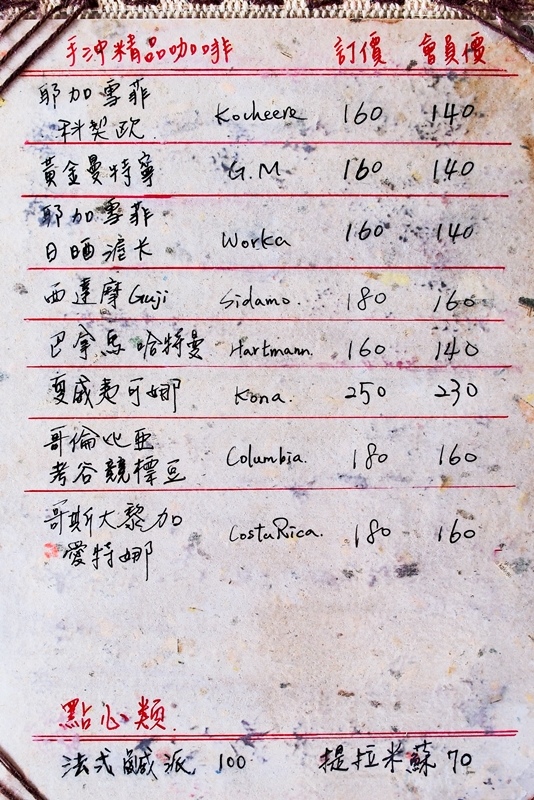 手沖精品咖啡 訂價 會員價
耶加雪菲
科契歐 Kocheere 160 140
黃金曼特寧 G.M 160 140
耶加雪菲
日晒渡卡 Worka 160 140
西達摩Guji Sidamo. 180 160
巴拿馬哈特曼 Hartmann. 160 140
夏威夷可娜 Kona. 250 230
哥倫比亞
考谷競標豆 Columbia. 180 160
哥斯大黎加
愛特娜 CostaRica. 180 160
點心類
法式鹹派 100 提拉米蘇 70